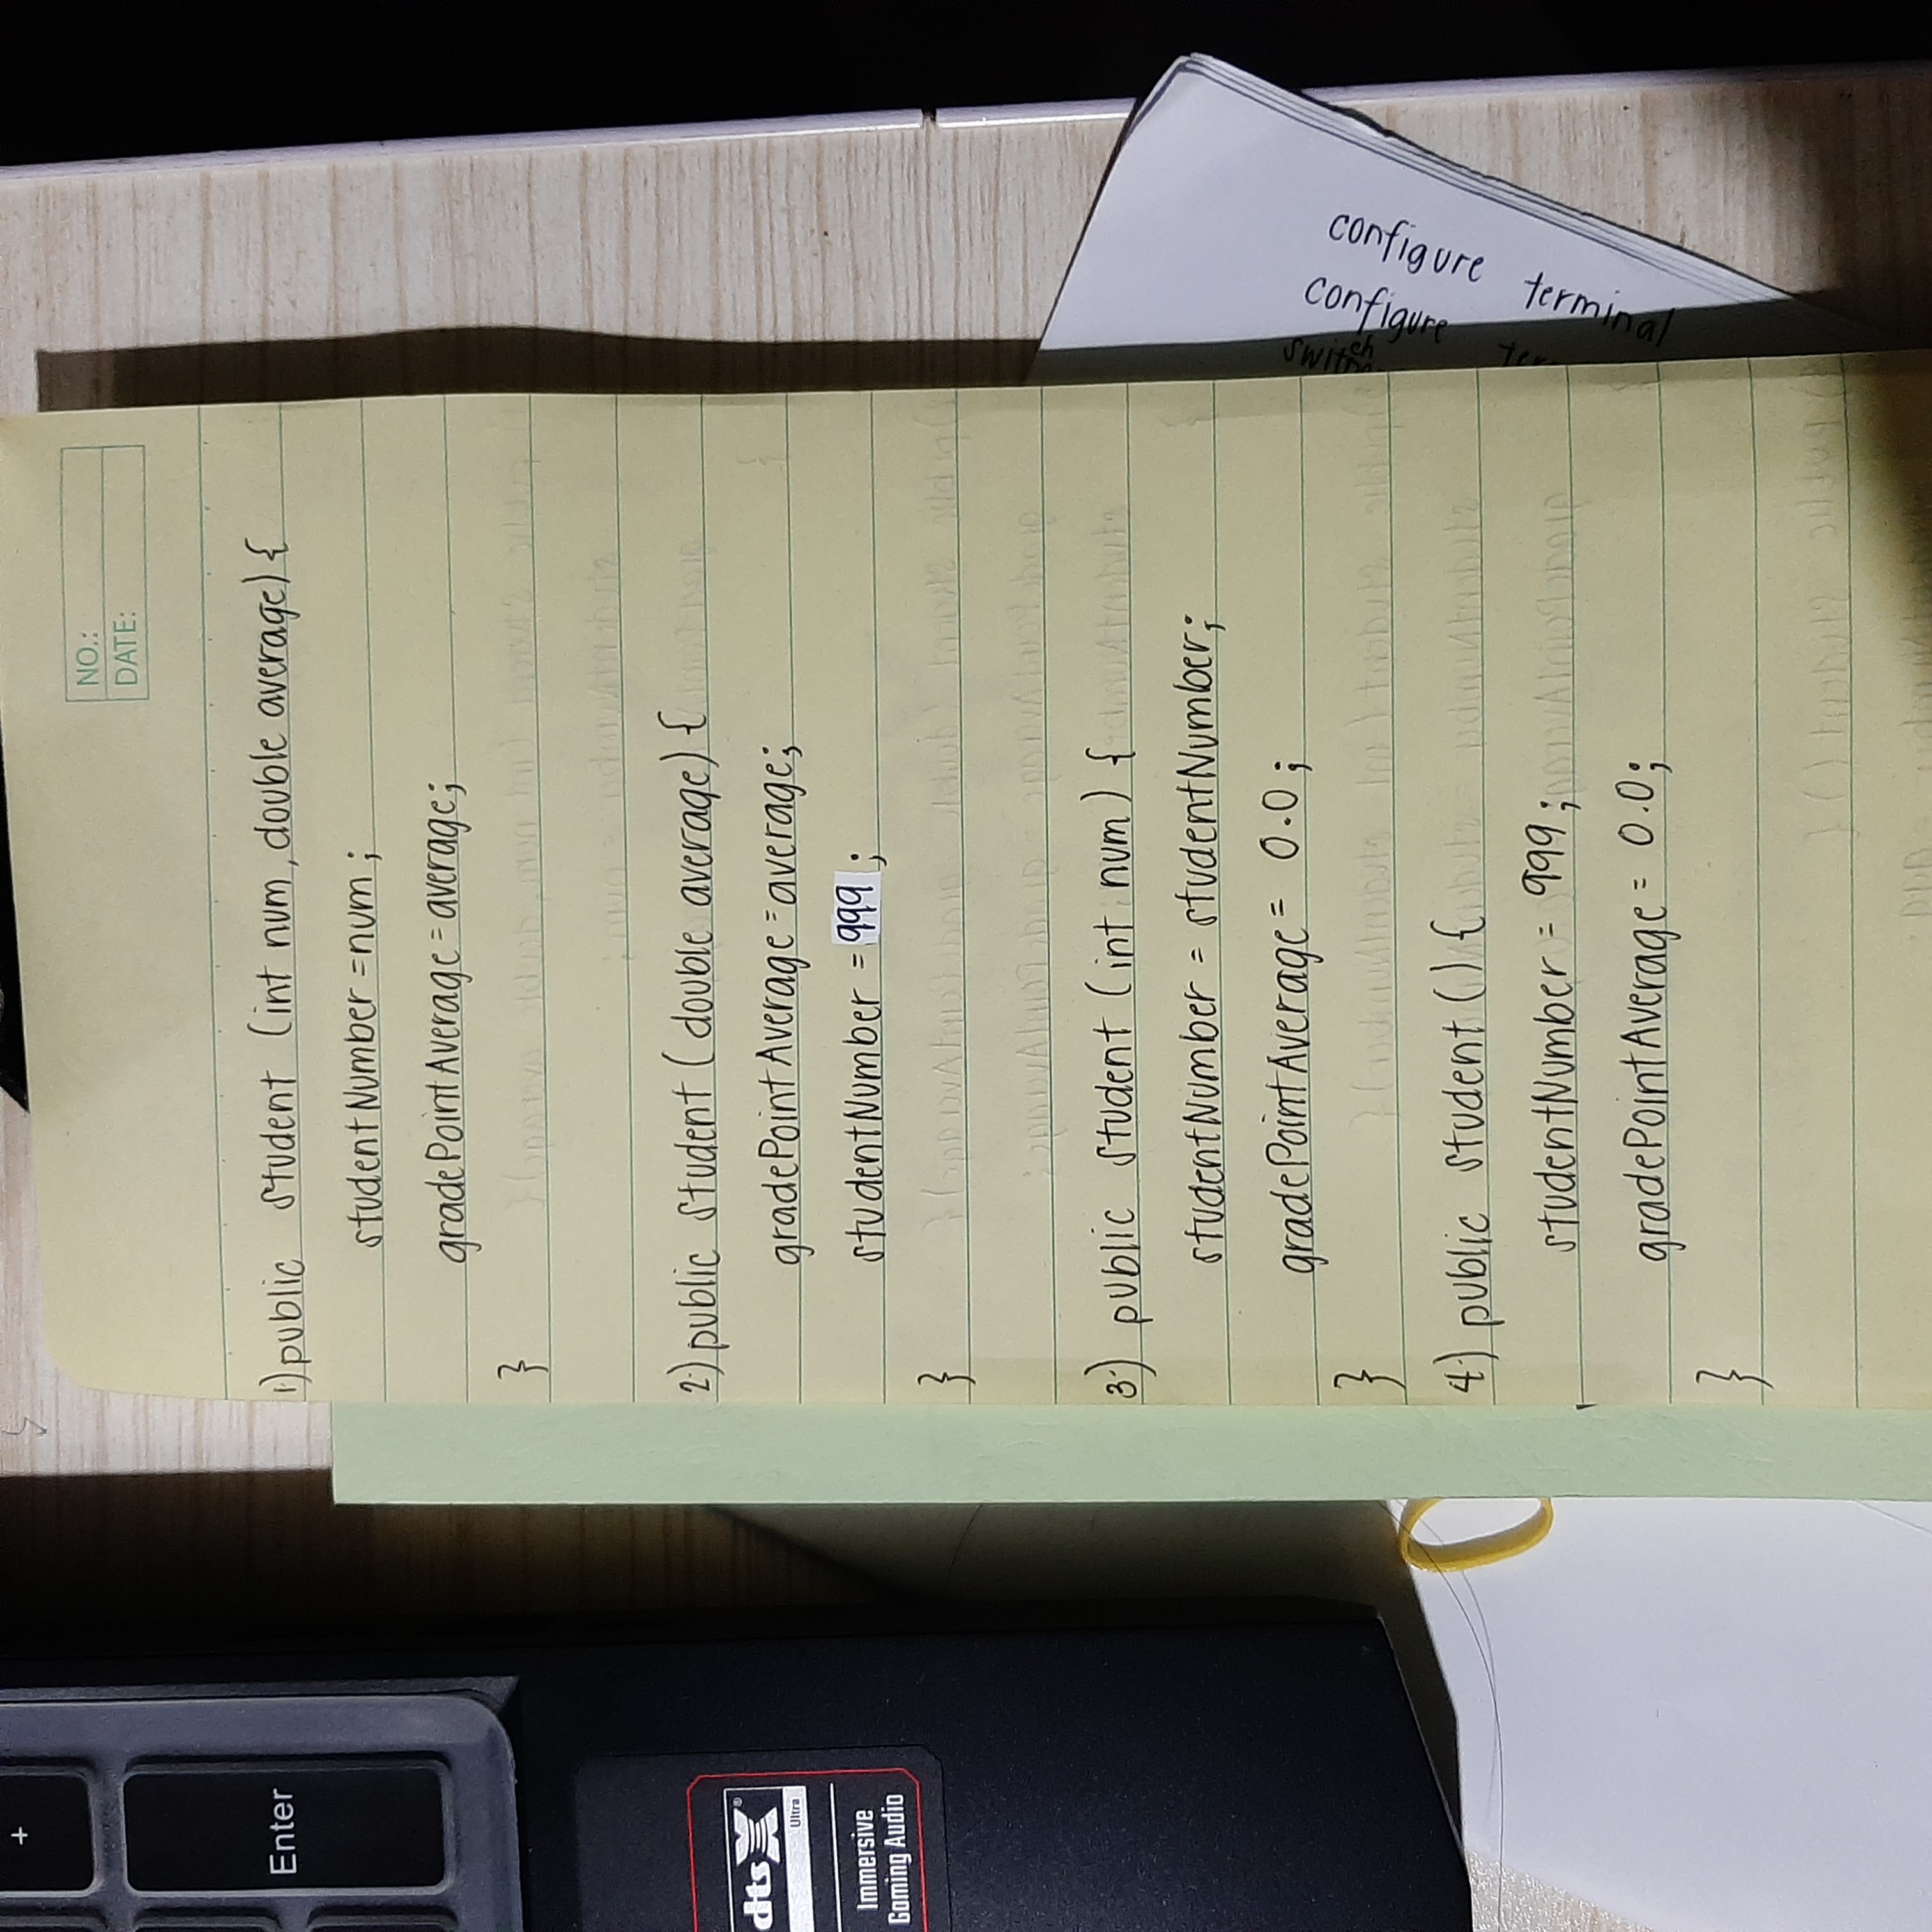 +
Enter
dts X®
Ultra
Immersive
Gaming Audio
NO.:
DATE:
1.) public Student (int num, double average) {
studentNumber = num ;
gradePointAverage = average;
}
2.) public Student ( double average) {
gradePointAverage = average;
studentNumber = 999 ;
}
3.) public Student (int num) {
studentNumber = studentNumber;
gradePointAverage = 0.0 ;
}
4.) public Student () {
studentNumber = 999;
gradePointAverage = 0.0;
}
configure
configure terminal
switch